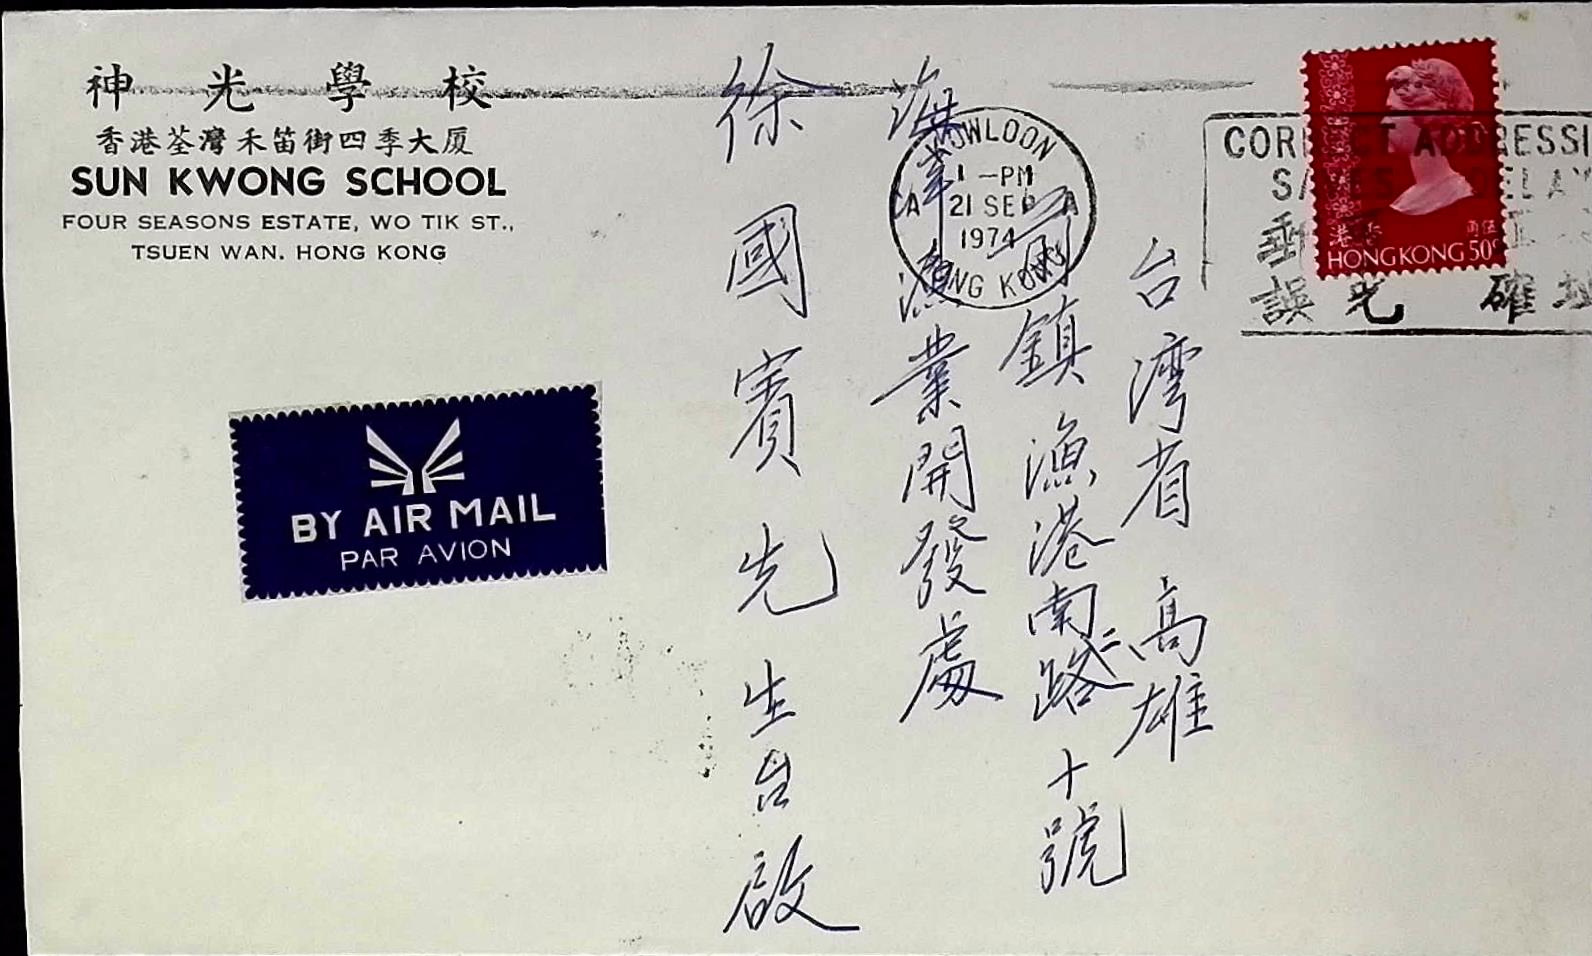 神光學校
香港荃灣禾笛街四季大厦
SUN KWONG SCHOOL
FOUR SEASONS ESTATE, WO TIK ST.,
TSUEN WAN. HONG KONG
BY AIR MAIL
PAR AVION
KOWLOON
1 -PM
21 SEP
1974
HONG KONG
香港
伍角
HONG KONG 50¢
CORRECT ADDRESSI
SAVES DELAY
誤 確址
台灣省高雄
鎮漁港南二路十號
漁業開發處
徐國賓先生台啟